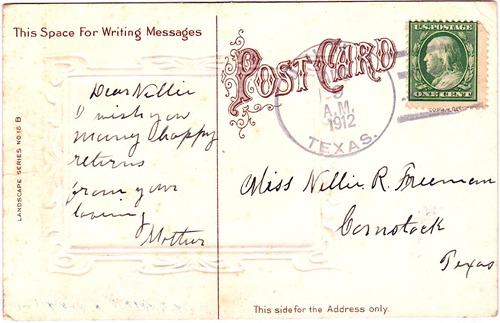 This Space For Writing Messages
POST CARD
U.S. POSTAGE
ONE CENT
A.M.
1912
TEXAS.
LANDSCAPE SERIES NO. 16 B
Dear Nellie
I wish you
many happy
returns
from your
loving
Mother
Miss Nellie R. Freeman
Comstock
Texas
This side for the Address only.